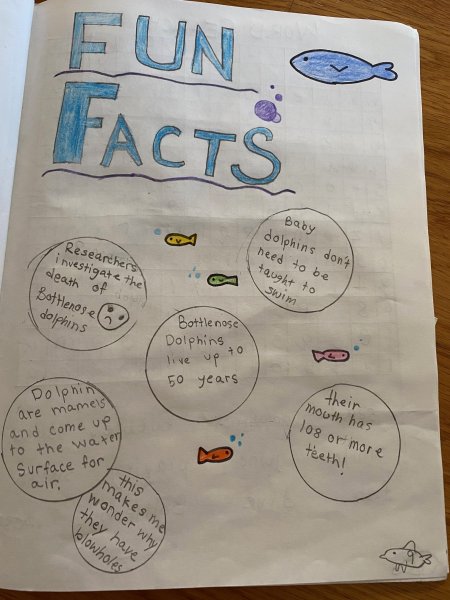 FUN
FACTS
Baby
dolphins don't
need to be
taught to
swim
Researchers
investigate the
death of
Bottlenose
dolphins
Bottlenose
Dolphins
live up to
50 years
their
mouth has
108 or more
teeth!
Dolphin
are mamels
and come up
to the water
Surface for
air.
this
makes me
wonder why
they have
blowholes